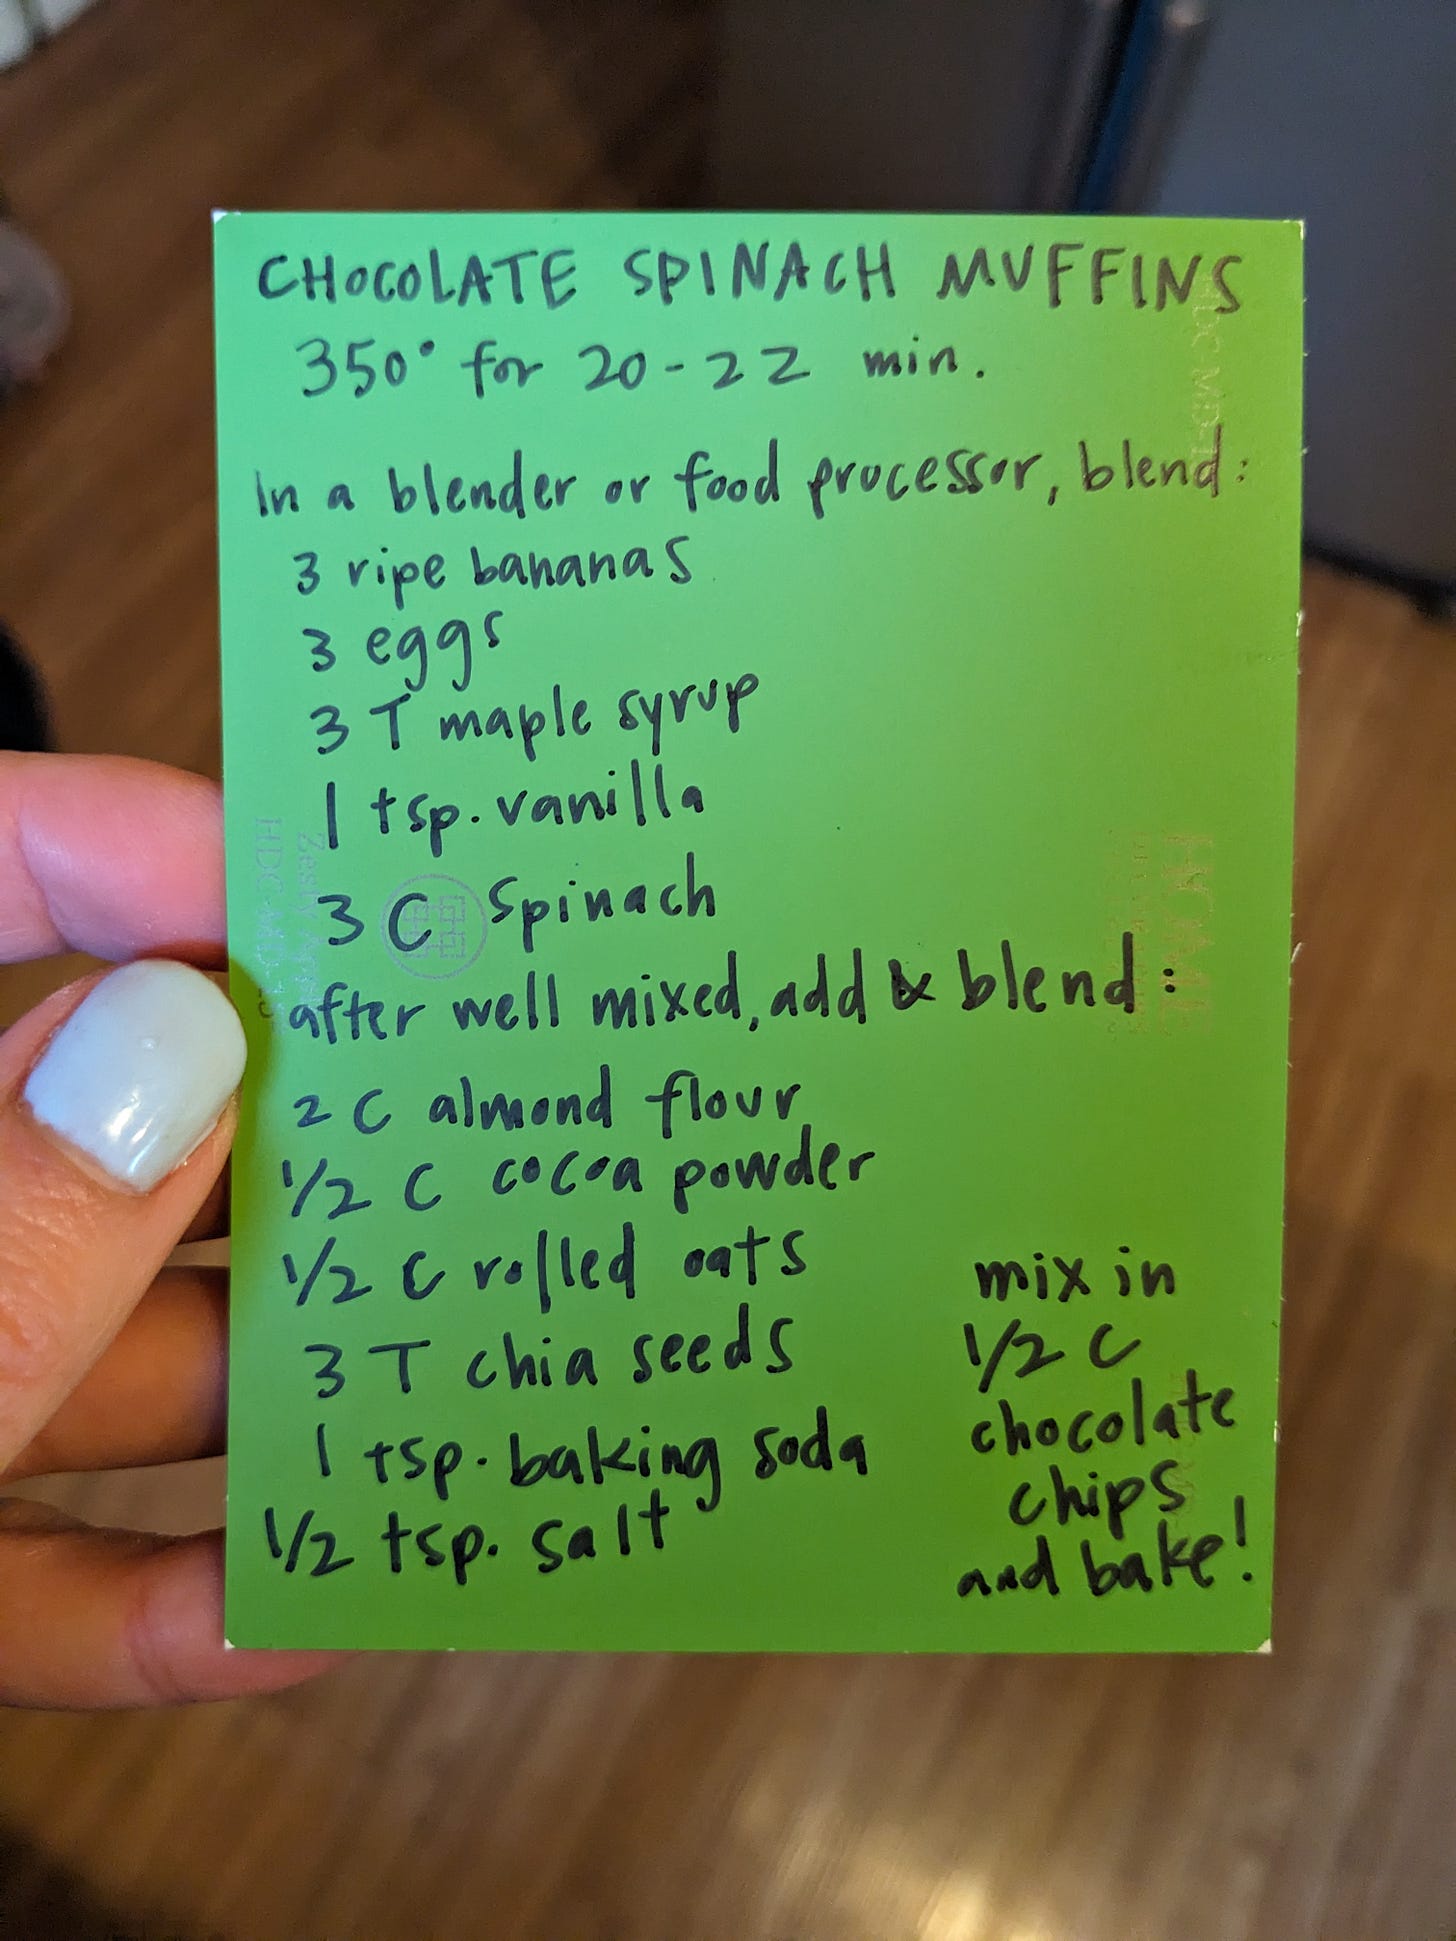 CHOCOLATE SPINACH MUFFINS
350° for 20-22 min.
In a blender or food processor, blend:
3 ripe bananas
3 eggs
3 T maple syrup
1 tsp. vanilla
3 C spinach
after well mixed, add & blend:
2 C almond flour
1/2 C cocoa powder
1/2 C rolled oats
3 T chia seeds
1 tsp. baking soda
1/2 tsp. salt
mix in
1/2 C
chocolate
chips
and bake!
HOME